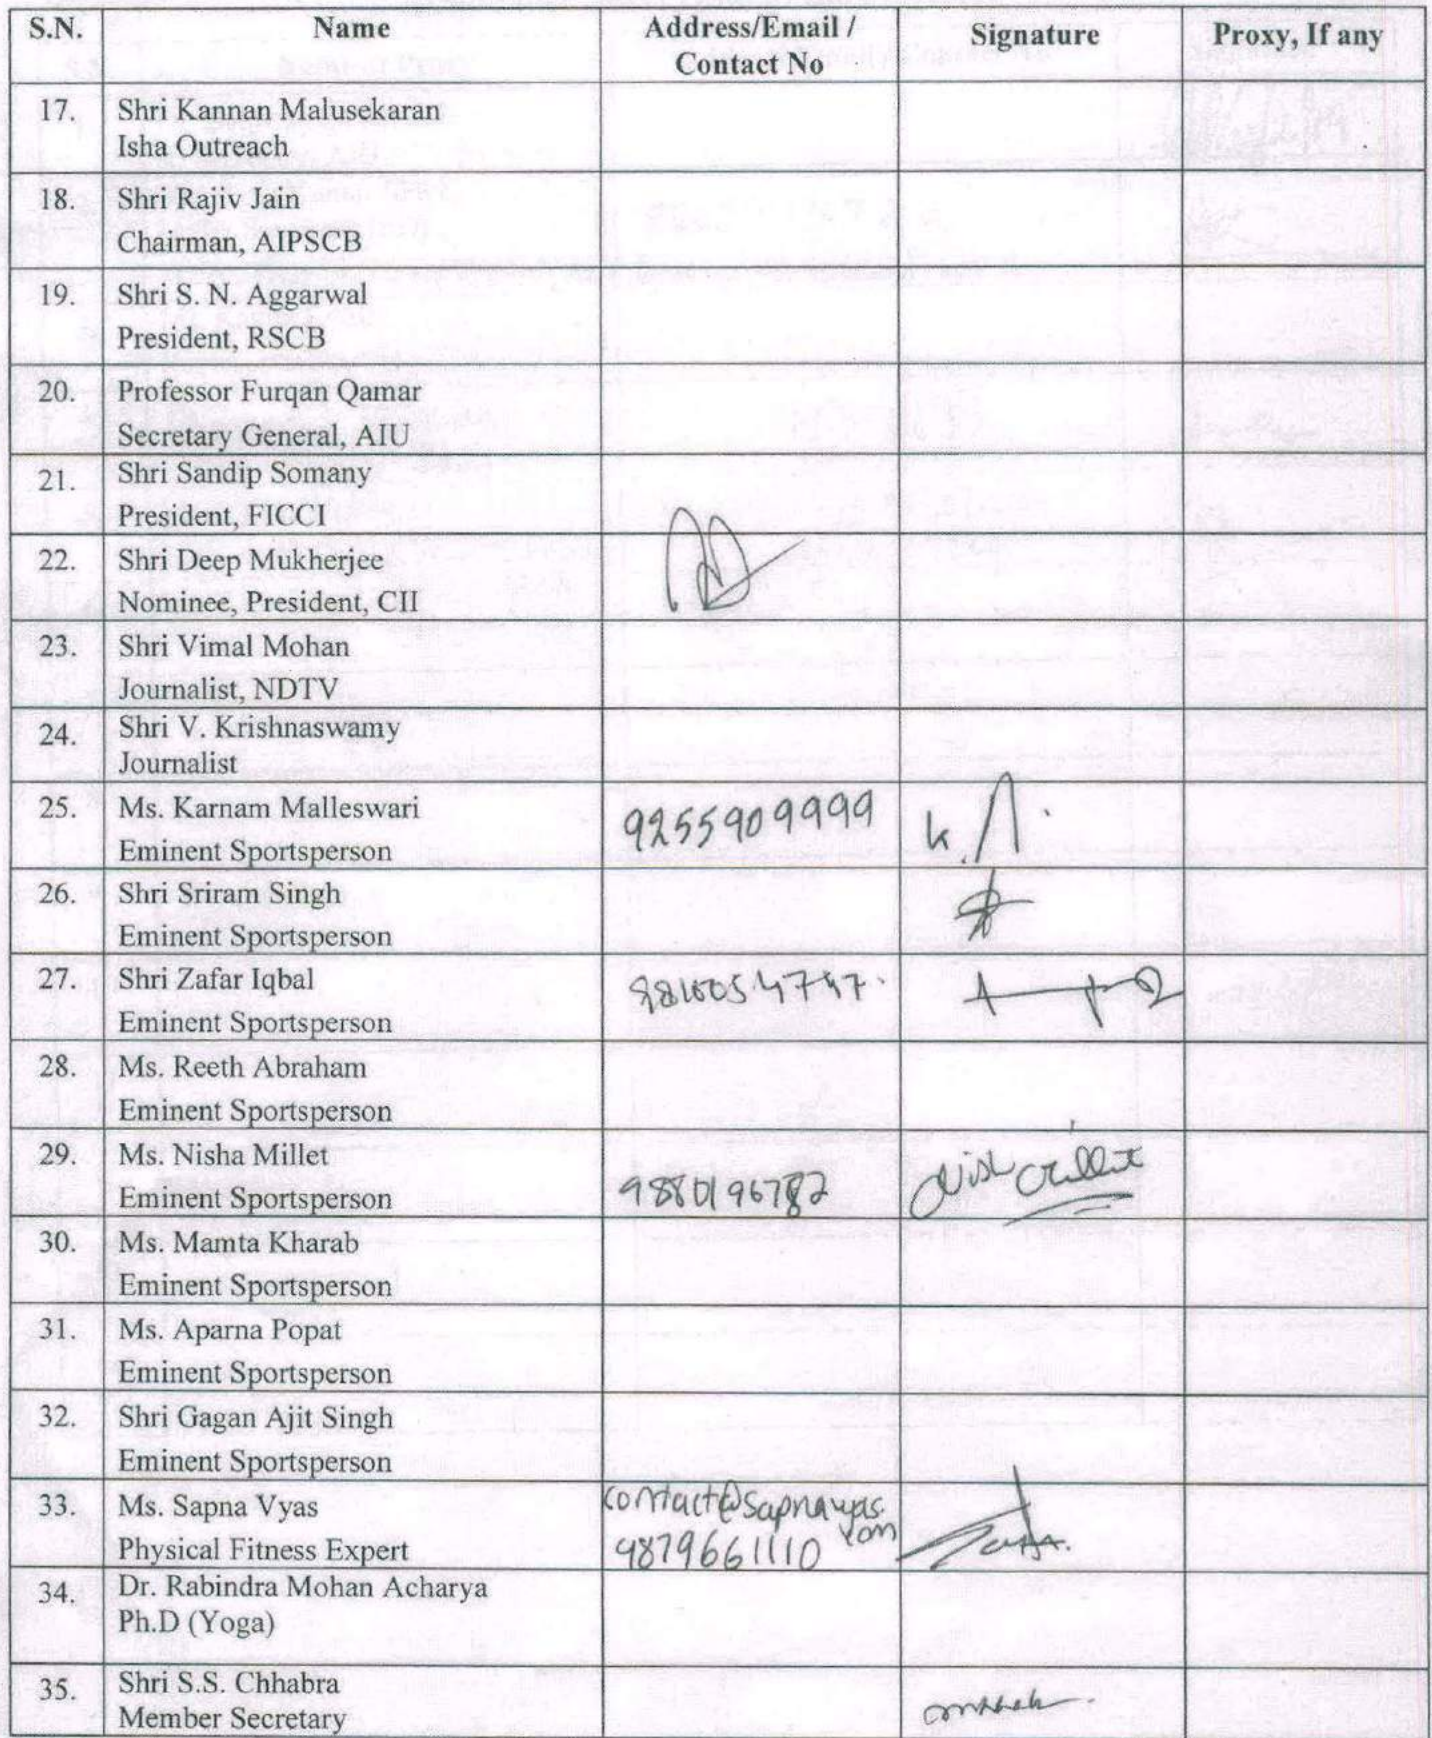 S.N. Name Address/Email / Signature Proxy, If any
Contact No
17. Shri Kannan Malusekaran
Isha Outreach
18. Shri Rajiv Jain
Chairman, AIPSCB
19. Shri S. N. Aggarwal
President, RSCB
20. Professor Furqan Qamar
Secretary General, AIU
21. Shri Sandip Somany
President, FICCI
22. Shri Deep Mukherjee
Nominee, President, CII
23. Shri Vimal Mohan
Journalist, NDTV
24. Shri V. Krishnaswamy
Journalist
25. Ms. Karnam Malleswari 9255909999
Eminent Sportsperson
26. Shri Sriram Singh
Eminent Sportsperson
27. Shri Zafar Iqbal
Eminent Sportsperson
28. Ms. Reeth Abraham
Eminent Sportsperson
29. Ms. Nisha Millet
Eminent Sportsperson 9880196782
30. Ms. Mamta Kharab
Eminent Sportsperson
31. Ms. Aparna Popat
Eminent Sportsperson
32. Shri Gagan Ajit Singh
Eminent Sportsperson
33. Ms. Sapna Vyas contact@sapnavyas.
com
Physical Fitness Expert 9879661110
34. Dr. Rabindra Mohan Acharya
Ph.D (Yoga)
35. Shri S.S. Chhabra
Member Secretary